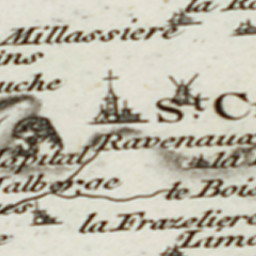 la
Millassiere
ins
uche
S.t C
Ravenaux
Hopital la
Malberge
le Bois
la Frazeliere
Limo